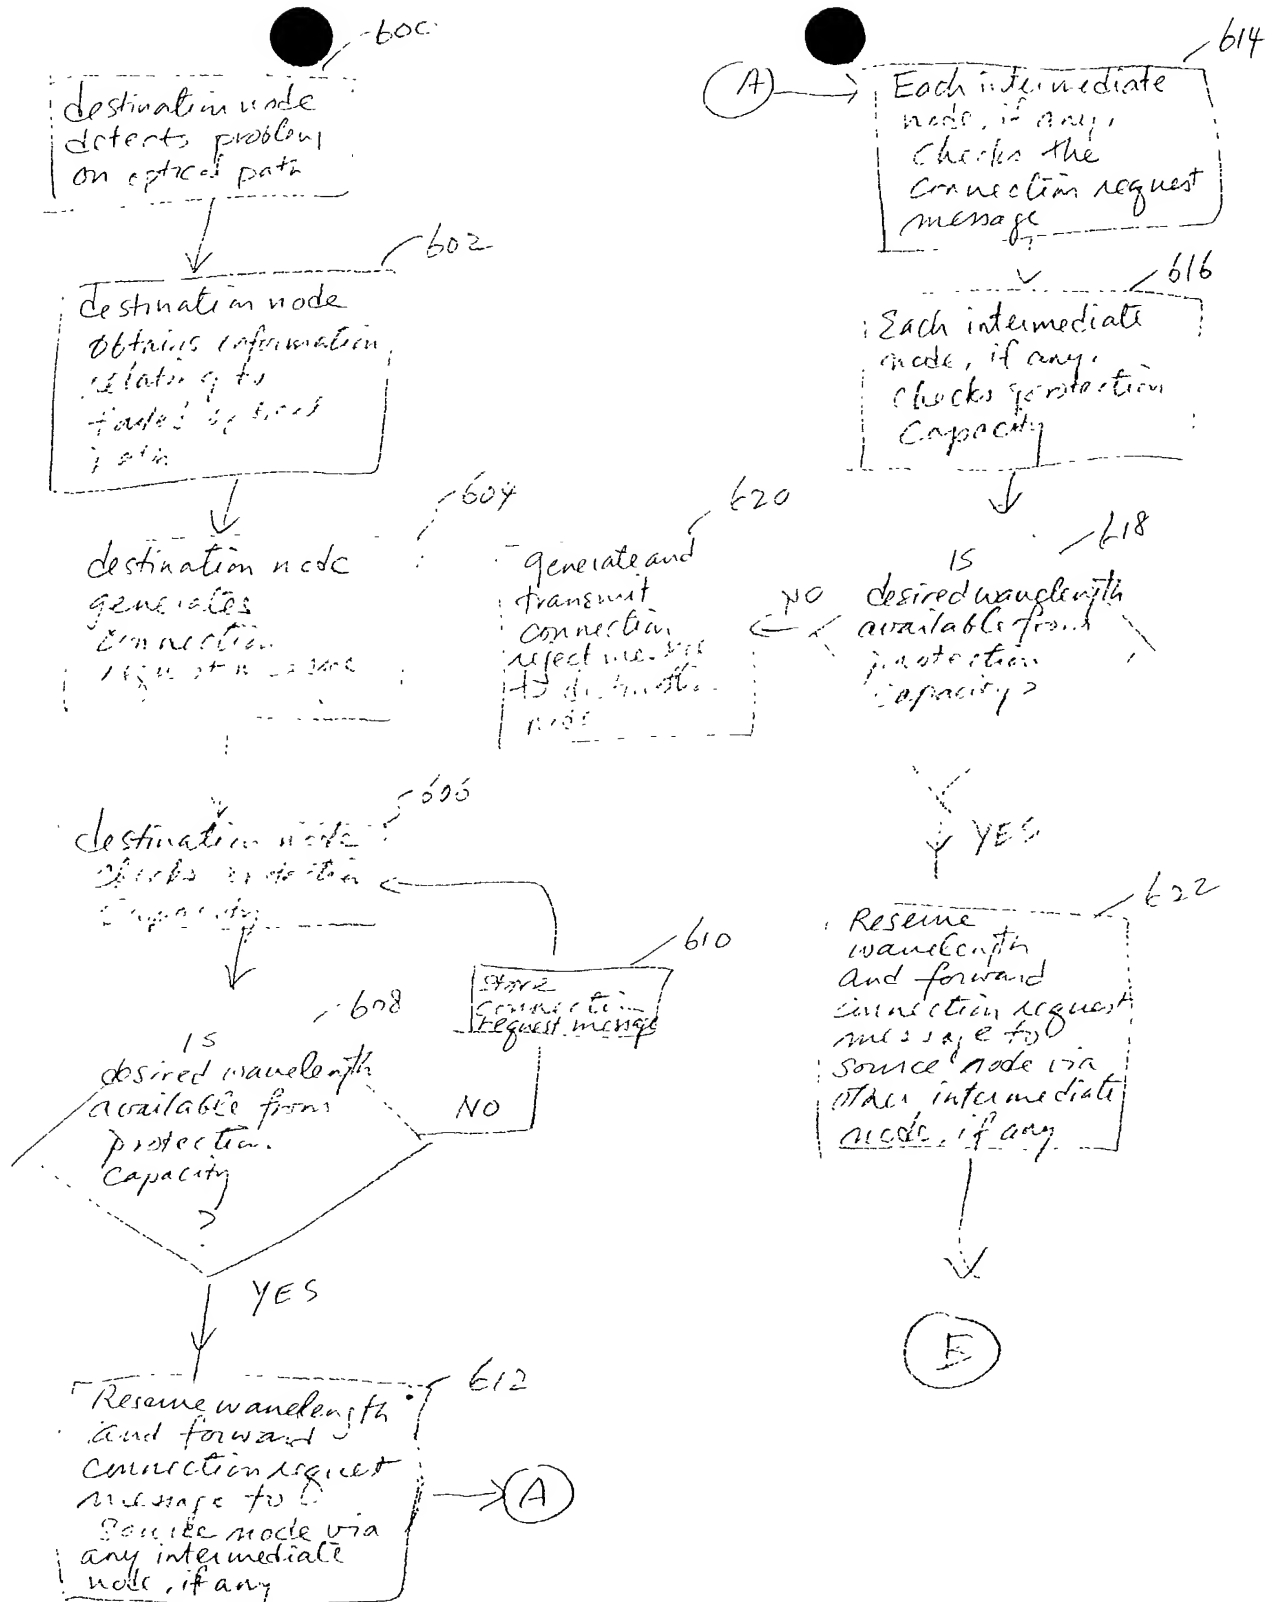 600
destination node
detects problem
on optical path
602
destination node
obtains information
relating to
failed optical
path
604
destination node
generates
connection
request message
606
destination node
checks protection
capacity
608
is
desired wavelength
available from
protection
capacity
?
NO
610
store
connection
request message
YES
612
Reserve wavelength
and forward
connection request
message to
source node via
any intermediate
node, if any
A
A
614
Each intermediate
node, if any,
checks the
connection request
message
616
Each intermediate
node, if any,
checks protection
capacity
618
IS
desired wavelength
available from
protection
capacity?
NO
620
generate and
transmit
connection
reject message
to destination
node
YES
622
Reserve
wavelength
and forward
connection request
message to
source node via
other intermediate
node, if any